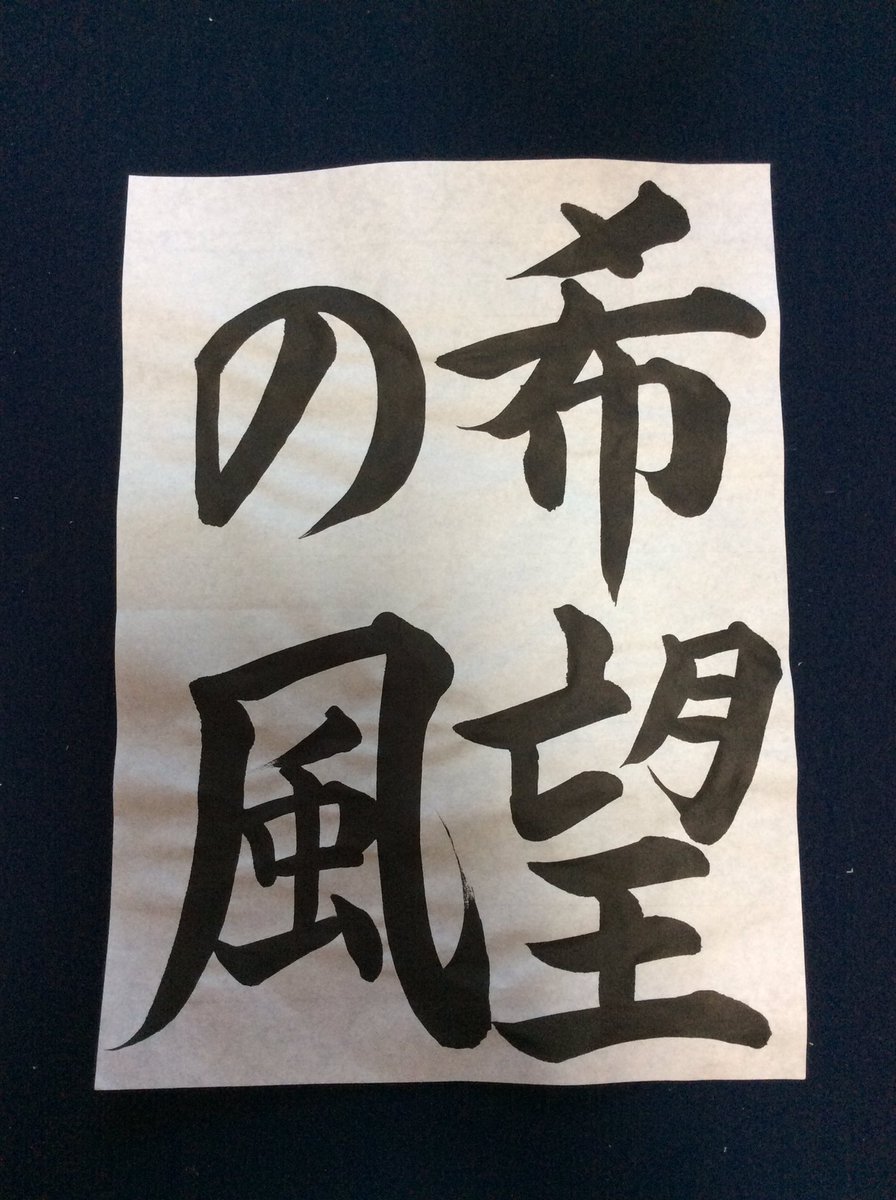 希望
の風